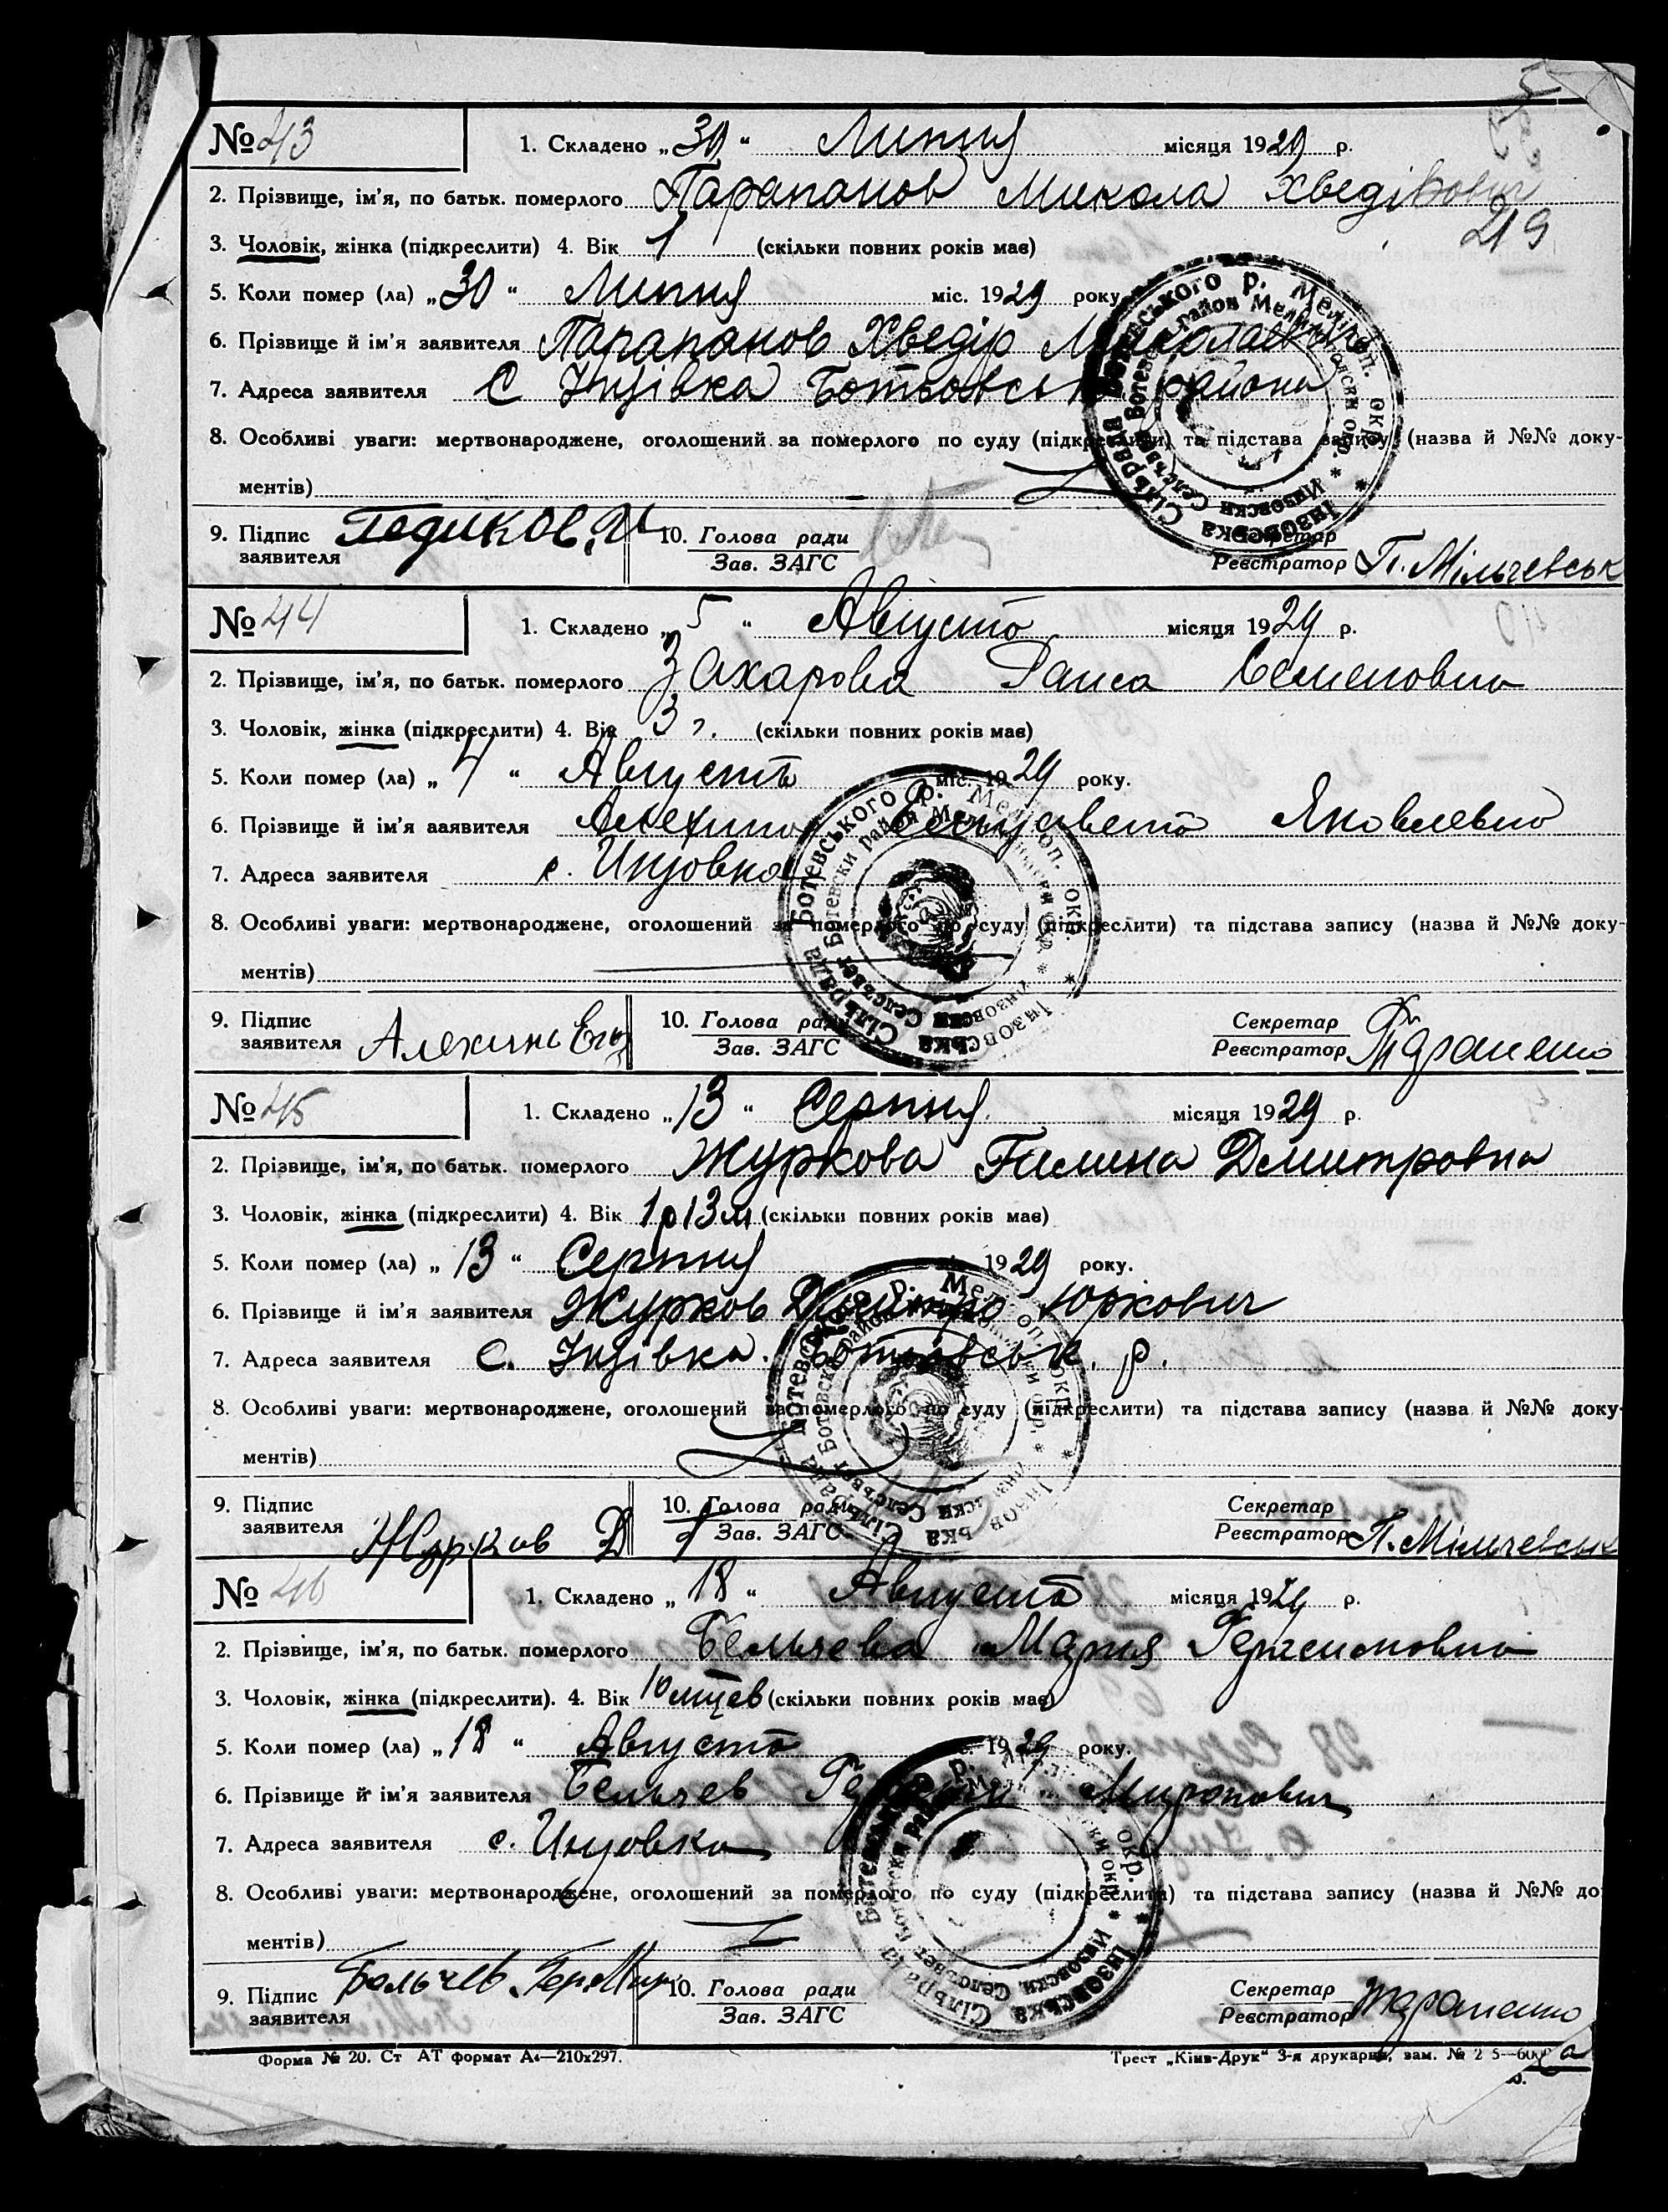 219
№ 43 1. Складено „30“ Липня місяця 1929 р.
2. Прізвище, ім'я, по батьк. померлого Парапанов Микола Хведірович
3. Чоловік, жінка (підкреслити) 4. Вік 1 (скільки повних років має)
5. Коли помер (ла) „30“ Липня міс. 1929 року
6. Прізвище й ім'я заявителя Парапанов Хведір Миколаевич
7. Адреса заявителя С Інзівка Ботьовськ района
8. Особливі уваги: мертвонароджене, оголошений за померлого по суду (підкреслити) та підстава запису (назва й №№ доку-
ментів)
9. Підпис заявителя 10. Голова ради Зав. ЗАГС Секретар Реєстратор П. Мільчевськ
№ 44 1. Складено „5“ Августа місяця 1929 р.
2. Прізвище, ім'я, по батьк. померлого Захарова Раиса Семеновна
3. Чоловік, жінка (підкреслити) 4. Вік 3 г. (скільки повних років має)
5. Коли помер (ла) „4“ Августа міс. 1929 року.
6. Прізвище й ім'я заявителя Алехина Елизавета Яковлевна
7. Адреса заявителя с. Инзовка
8. Особливі уваги: мертвонароджене, оголошений за померлого по суду (підкреслити) та підстава запису (назва й №№ доку-
ментів)
9. Підпис заявителя 10. Голова ради Зав. ЗАГС Секретар Реєстратор
№ 45 1. Складено „13“ Серпня місяця 1929 р.
2. Прізвище, ім'я, по батьк. померлого Журкова Галина Дмитровна
3. Чоловік, жінка (підкреслити) 4. Вік 1 р 3 м (скільки повних років має)
5. Коли помер (ла) „13“ Серпня 1929 року.
6. Прізвище й ім'я заявителя Журков Дмитро Юркович
7. Адреса заявителя С. Інзівка. Ботьовськ. р.
8. Особливі уваги: мертвонароджене, оголошений за померлого по суду (підкреслити) та підстава запису (назва й №№ доку-
ментів)
9. Підпис заявителя Журков Д 10. Голова ради Зав. ЗАГС Секретар Реєстратор П. Мільчевськ
№ 46 1. Складено „18“ Августа місяця 1929 р.
2. Прізвище, ім'я, по батьк. померлого Бельчева Мария
3. Чоловік, жінка (підкреслити). 4. Вік 10 мцев (скільки повних років має)
5. Коли помер (ла) „18“ Августа 1929 року.
6. Прізвище й ім'я заявителя Бельчев Миронович
7. Адреса заявителя с. Инзовка
8. Особливі уваги: мертвонароджене, оголошений за померлого по суду (підкреслити) та підстава запису (назва й №№ до
ментів)
9. Підпис заявителя Бельчев 10. Голова ради Зав. ЗАГС Секретар Реєстратор
Форма № 20. Ст АТ формат А4—210х297. Трест „Київ-Друк“ 3-я друкарня, зам. №